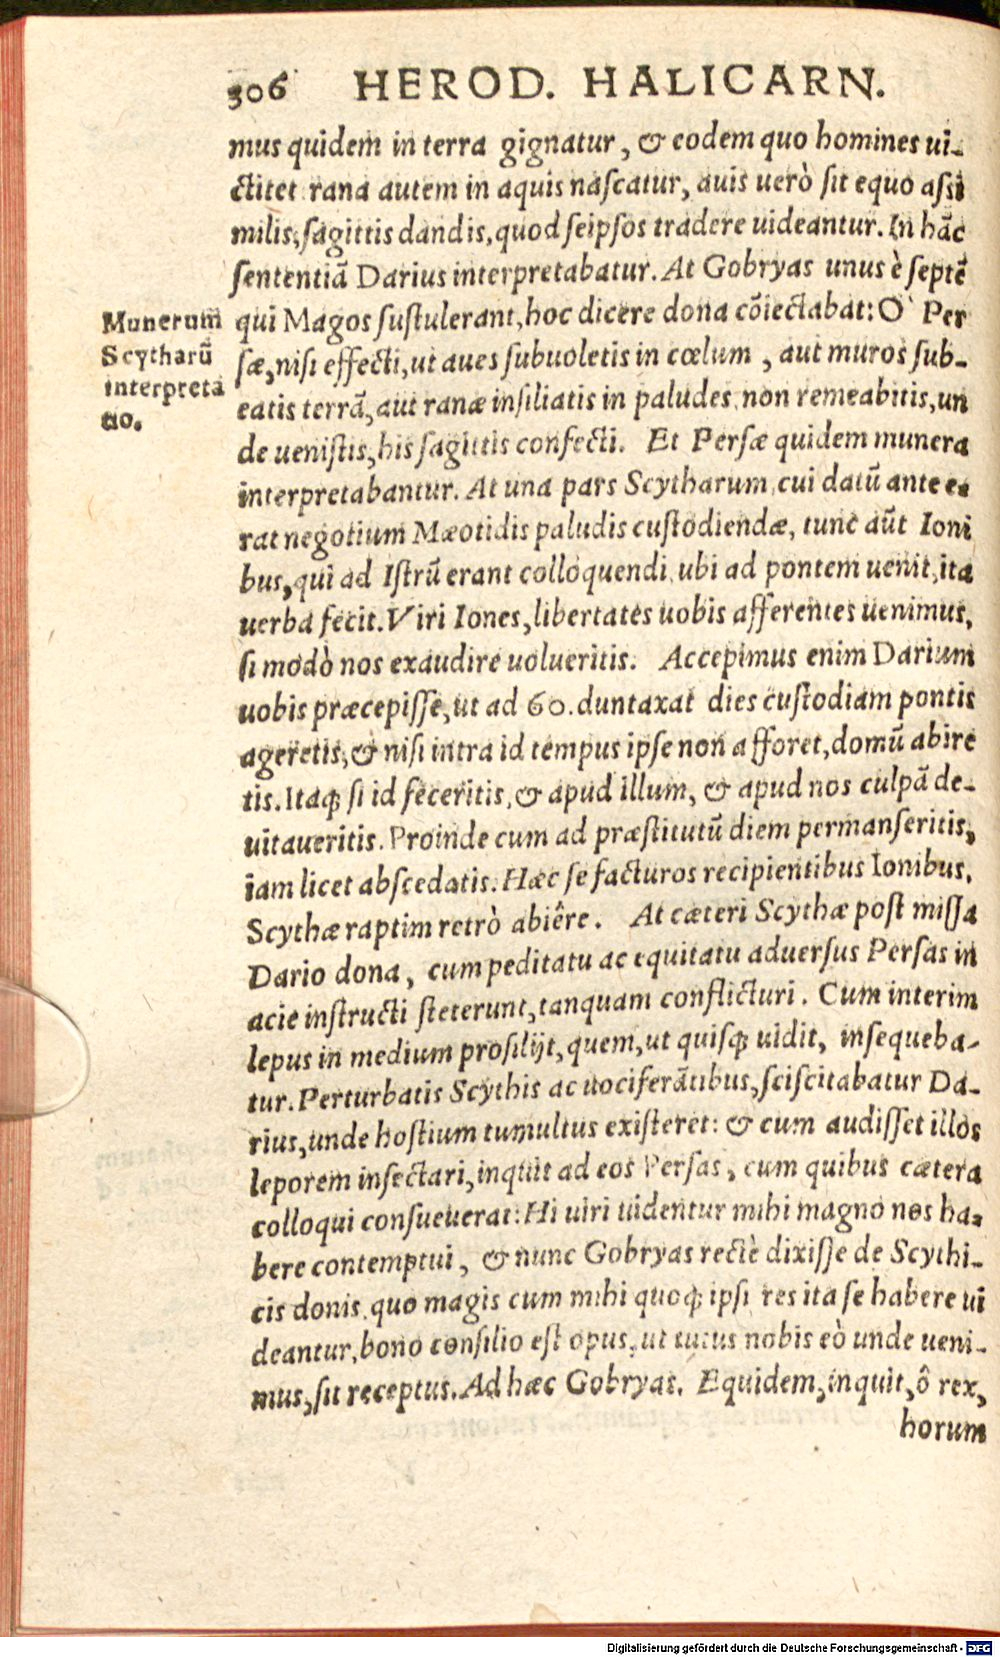 306 HEROD. HALICARN.
mus quidem in terra gignatur, & eodem quo homines ui-
ctitet rana autem in aquis nascatur, auis uerò sit equo assi
milis, sagittis dandis, quod seipsos tradere uideantur. In hāc
sententiā Darius interpretabatur. At Gobryas unus è septē
qui Magos sustulerant, hoc dicere dona cōiectabat: O Per
sæ, nisi effecti, ut aues subuoletis in cœlum, aut muros sub-
eatis terrā, aut ranæ insiliatis in paludes, non remeabitis, un
de uenistis, his sagittis confecti. Et Persæ quidem munera
interpretabantur. At una pars Scytharum, cui datū ante e-
rat negotium Mæotidis paludis custodiendæ, tunc aūt Ioni
bus, qui ad Istrū erant colloquendi, ubi ad pontem uenit, ita
uerba fecit. Viri Iones, libertatēs uobis afferentes uenimus,
si modò nos exaudire uolueritis. Accepimus enim Darium
uobis præcepisse, ut ad 60. duntaxat dies custodiam pontis
ageretis, & nisi intra id tempus ipse non afforet, domū abire
tis. Itaq; si id feceritis, & apud illum, & apud nos culpā de-
uitaueritis. Proinde cum ad præstitutū diem permanseritis,
iam licet abscedatis. Hæc se facturos recipientibus Ionibus,
Scythæ raptim retrò abiêre. At cæteri Scythæ post missa
Dario dona, cum peditatu ac equitatu aduersus Persas in
acie instructi steterunt, tanquam conflicturi. Cum interim
lepus in medium prosilijt, quem, ut quisq; uidit, insequeba-
tur. Perturbatis Scythis ac uociferātibus, sciscitabatur Da-
rius, unde hostium tumultus existeret: & cum audisset illos
leporem insectari, inquit ad eos Persas, cum quibus cætera
colloqui consueuerat: Hi uiri uidentur mihi magno nos ha-
bere contemptui, & nunc Gobryas rectè dixisse de Scythi-
cis donis. quo magis cum mihi quoq; ipsi res ita se habere ui
deantur, bono consilio est opus, ut tutus nobis eò unde ueni-
mus, sit receptus. Ad hæc Gobryas. Equidem, inquit, ô rex,
horum
Munerum
Scytharū
interpreta
tio.
Digitalisierung gefördert durch die Deutsche Forschungsgemeinschaft - DFG